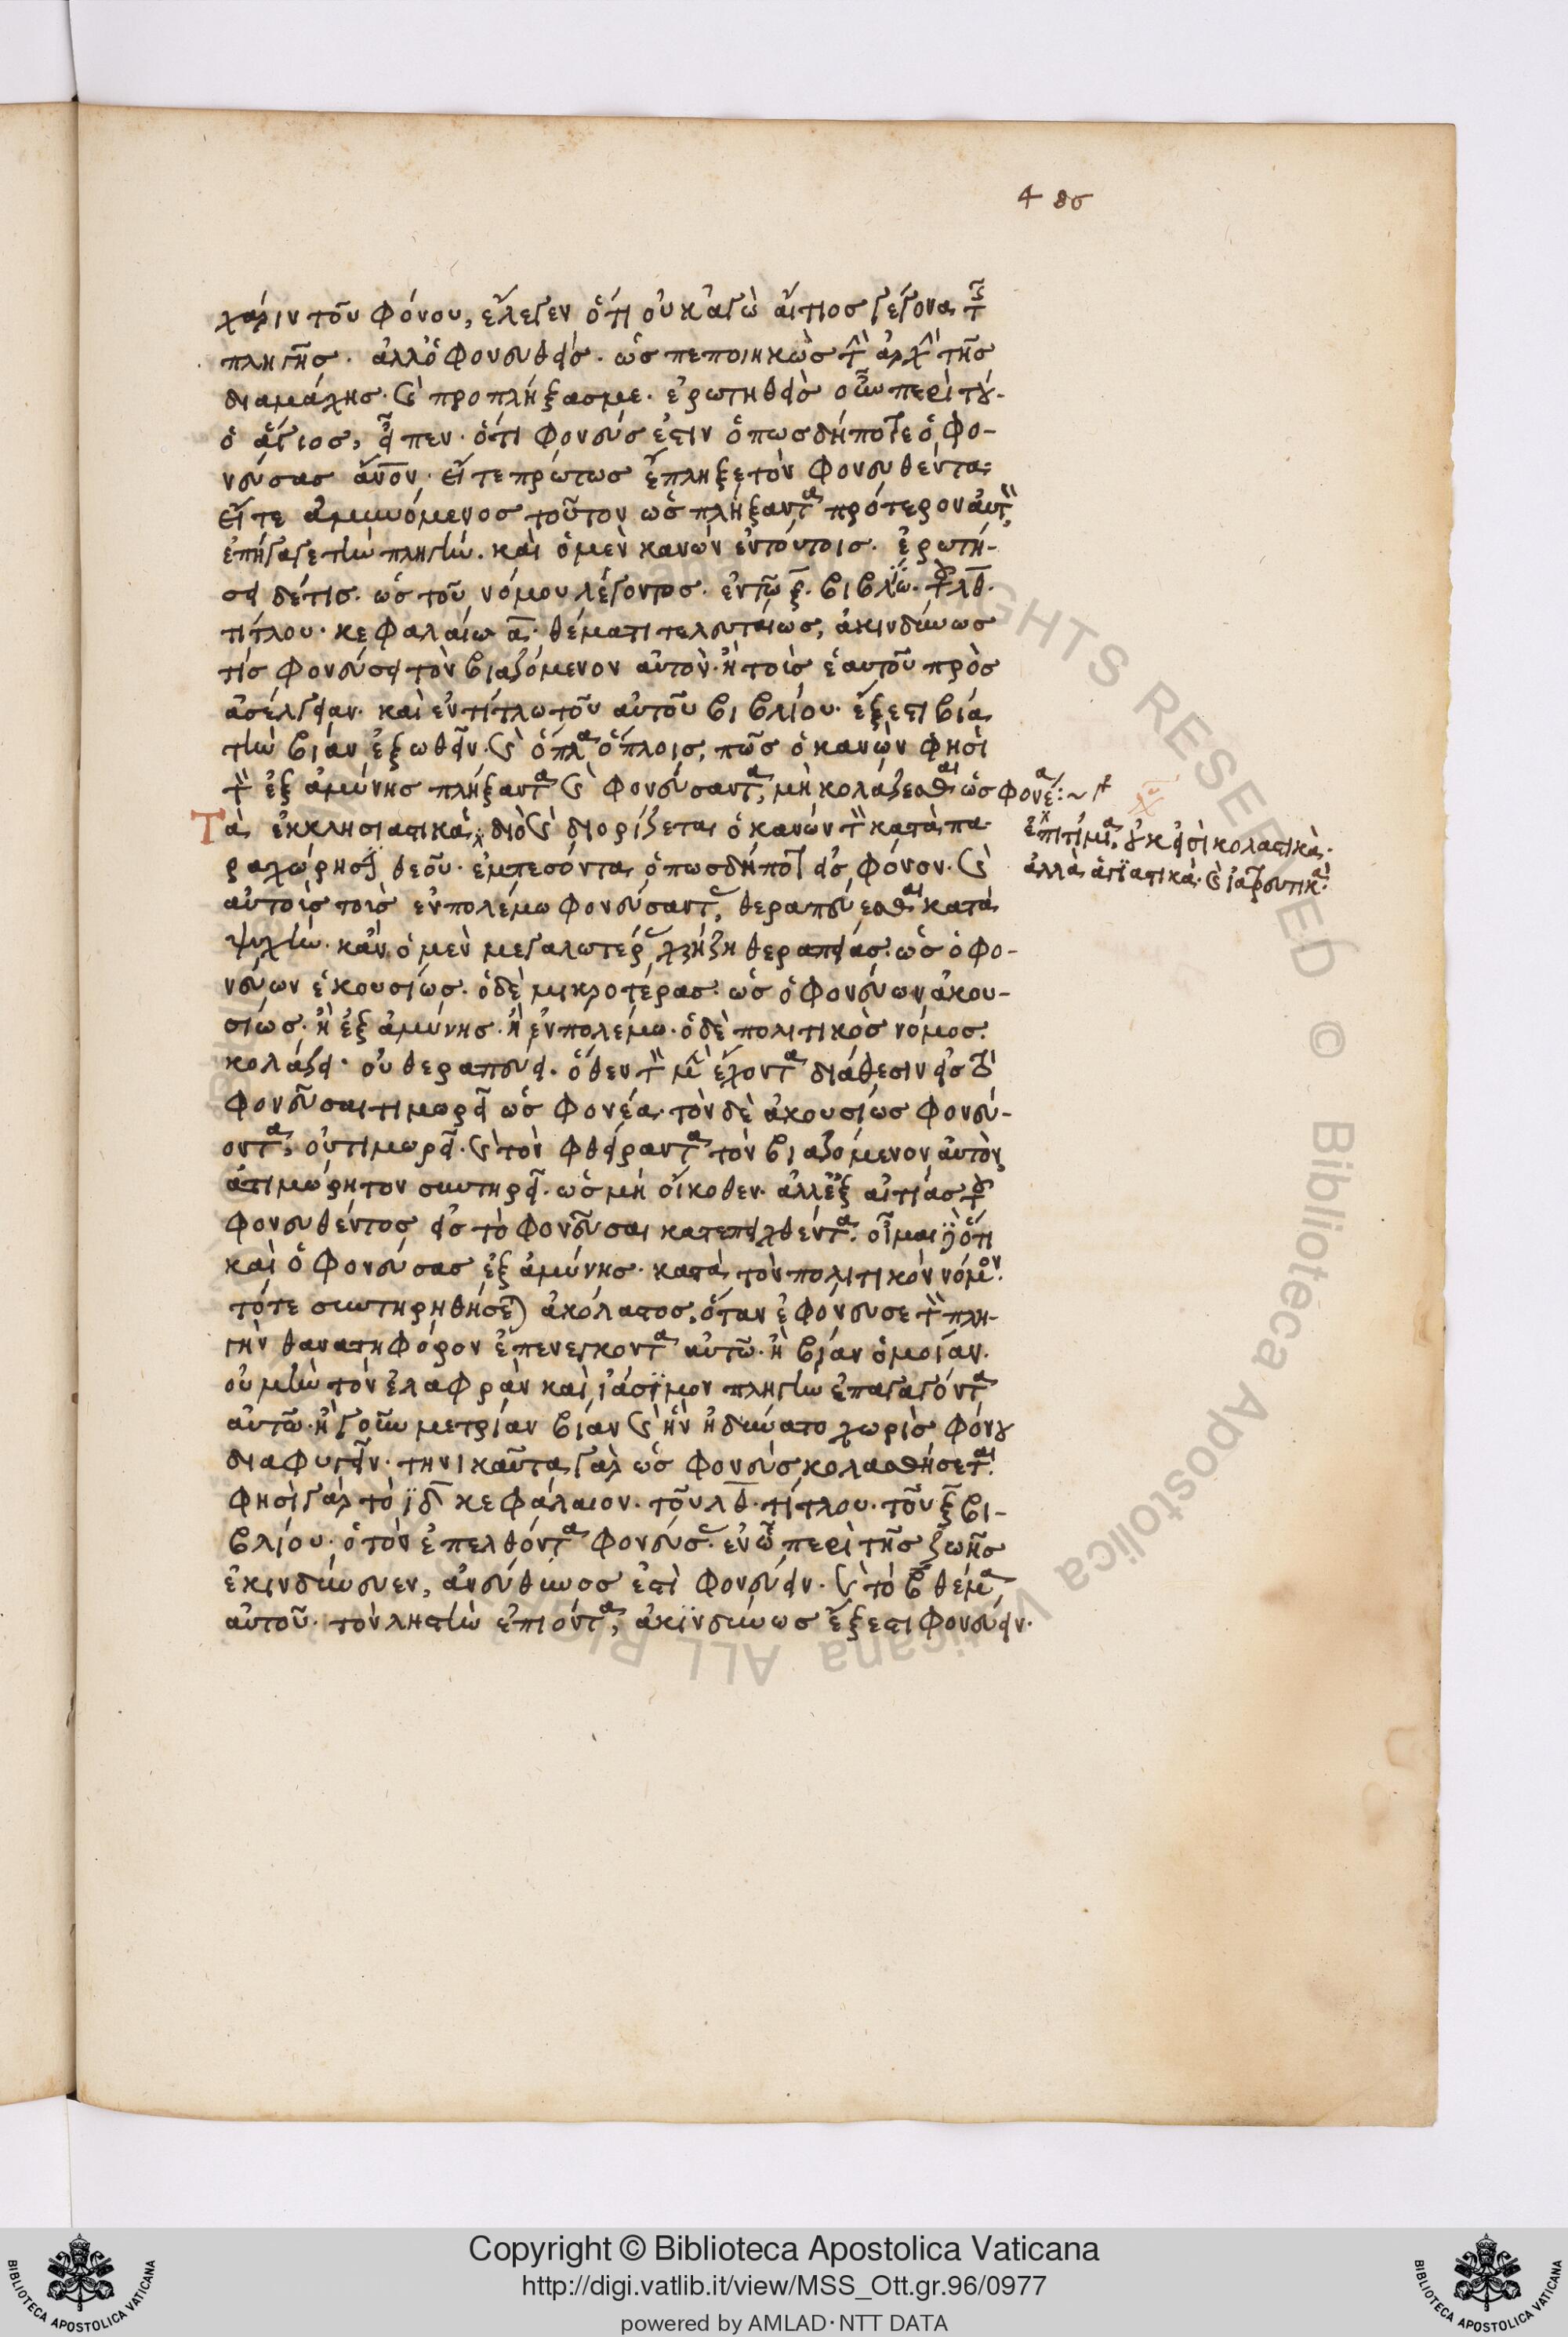 486
χάριν τοῦ φόνου, ἔλεγεν ὅτι οὐκ ἀγὼ αἴτιος γέγονα τῆς
πληγῆς. ἀλλ' ὁ φονευθείς. ὡς πεποιηκὼς τὴν ἀρχὴν τῆς
διαμάχης. καὶ προπλήξας με. ἐρωτηθεὶς οὖν περὶ τού-
ὁ ἅγιος, εἶπεν. ὅτι φονεύς ἐστιν ὁπωσδήποτε ὁ φο-
νεύσας ἄνον. εἴτε πρώτως ἔπληξε τὸν φονευθέντα.
εἴτε ἀμυνόμενος τοῦτον ὡς πλήξαντα πρότερον αὐτὸν,
ἐπήγαγε τὴν πληγήν. καὶ ὁ μὲν κανὼν ἐν τούτοις. ἐρωτή-
σει δέ τις. ὡς τοῦ νόμου λέγοντος. ἐν τῷ ξ. βιβλίω. τοῦ λθ.
τίτλου. κεφαλαίω α. θέματι τελευταίως, ἀκινδύνως
τίς φονεύσει τὸν βιαζόμενον αὐτὸν. ἢ τοὶς ἑαυτοῦ πρὸς
ἀσέλγειαν. καὶ ἐν τίτλω τοῦ αὐτοῦ βιβλίου. ἔξεστι βία
τὴν βίαν ἐξωθεῖν. καὶ ὅπλα ὅπλοις, πῶς ὁ κανὼν φησὶ
τὸν ἐξ ἀμύνης πλήξαντα καὶ φονεύσαντα, μὴ κολάζεσθαι ὡς φονέα:~
Τὰ ἐκκλησιαστικὰ, διὸ καὶ διορίζεται ὁ κανὼν τὸν κατὰ πα-
ραχώρησιν θεοῦ. ἐμπεσόντα ὁπωσδήποτε εἰς φόνον. καὶ
αὐτοὶς τοὶς ἐν πολέμω φονεύσαντας, θεραπεύεσθαι κατὰ
ψυχὴν. κἂν ὁ μὲν μεγαλωτέρας χρήζη θεραπείας. ὡς ὁ φο-
νεύων ἑκουσίως. ὁ δὲ μικροτέρας. ὡς ὁ φονεύων ἀκου-
σίως. ἢ ἐξ ἀμύνης. ἢ ἐν πολέμω. ὁ δὲ πολιτικὸς νόμος.
κολάζει. οὐ θεραπεύει. ὅθεν τὸν μὲν ἔχοντα διάθεσιν εἰς τὸ
φονεῦσαι τιμωρεῖ ὡς φονέα. τὸν δὲ ἀκουσίως φονεύ-
οντα, οὐ τιμωρεῖ. καὶ τὸν φθείραντα τὸν βιαζόμενον αὐτὸν
ἀτιμώρητον συντηρεῖ. ὡς μὴ οἴκοθεν. ἀλλ' ἐξ αἰτίας τοῦ
φονευθέντος εἰς τὸ φονεῦσαι κατεπειχθέντα. οἶμαι δὲ ὅτι
καὶ ὁ φονεύσας ἐξ ἀμύνης. κατὰ τὸν πολιτικὸν νόμον.
τότε συντηρηθήσεται ἀκόλαστος, ὅταν ἐφόνευσε τὸν πλη-
γὴν θανατηφόρον ἐπενεγκόντα αὐτῶ. ἢ βίαν ὁμοίαν.
οὐ μὴν τὸν ἐλαφρὰν καὶ ἰάσϊμον πληγὴν ἐπαγαγόντα
αὐτῶ. ἤγουν μετρίαν βίαν καὶ ἣν ἠδύνατο χωρὶς φόνου
διαφυγεῖν. τηνικαῦτα γὰρ ὡς φονεὺς κολασθήσεται.
φησὶ γὰρ τὸ ϊδ κεφάλαιον. τοῦ λθ. τίτλου. τοῦ ξ βι-
βλίου. ὁ τὸν ἐπελθόντα φονεύσας. ἐν ὧ περὶ τῆς ζωῆς
ἐκινδύνευεν, ἀνεύθυνος ἐστὶ φονεύειν. καὶ τὸ β θέμα
αὐτοῦ. τὸν ληστὴν ἐπιόντα, ἀκϊνδύνως ἔξεστι φονεύειν.
ἐπιτίμια, οὔκ εἰσὶ κολαστικὰ.
ἀλλὰ ἁγϊαστικὰ. καὶ ἰατρευτικαί
Copyright © Biblioteca Apostolica Vaticana
http://digi.vatlib.it/view/MSS_Ott.gr.96/0977
powered by AMLAD·NTT DATA
BIBLIOTECA APOSTOLICA VATICANA
BIBLIOTECA APOSTOLICA VATICANA